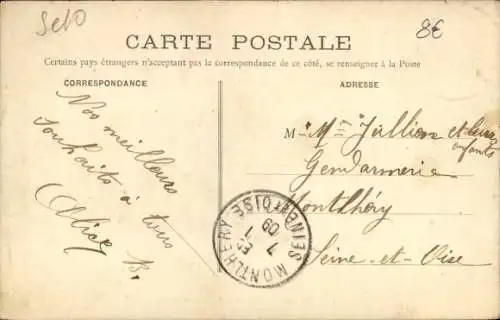 8€
CARTE POSTALE
Certains pays étrangers n'acceptant pas la correspondance de ce côté, se renseigner à la Poste
CORRESPONDANCE
ADRESSE
Nos meilleurs
souhaits à tous
Alice B.
M
Mme Jullien et leurs
enfants
Gendarmerie
Montlhéry
Seine-et-Oise
MONTLHERY
SEINE-ET-OISE
09